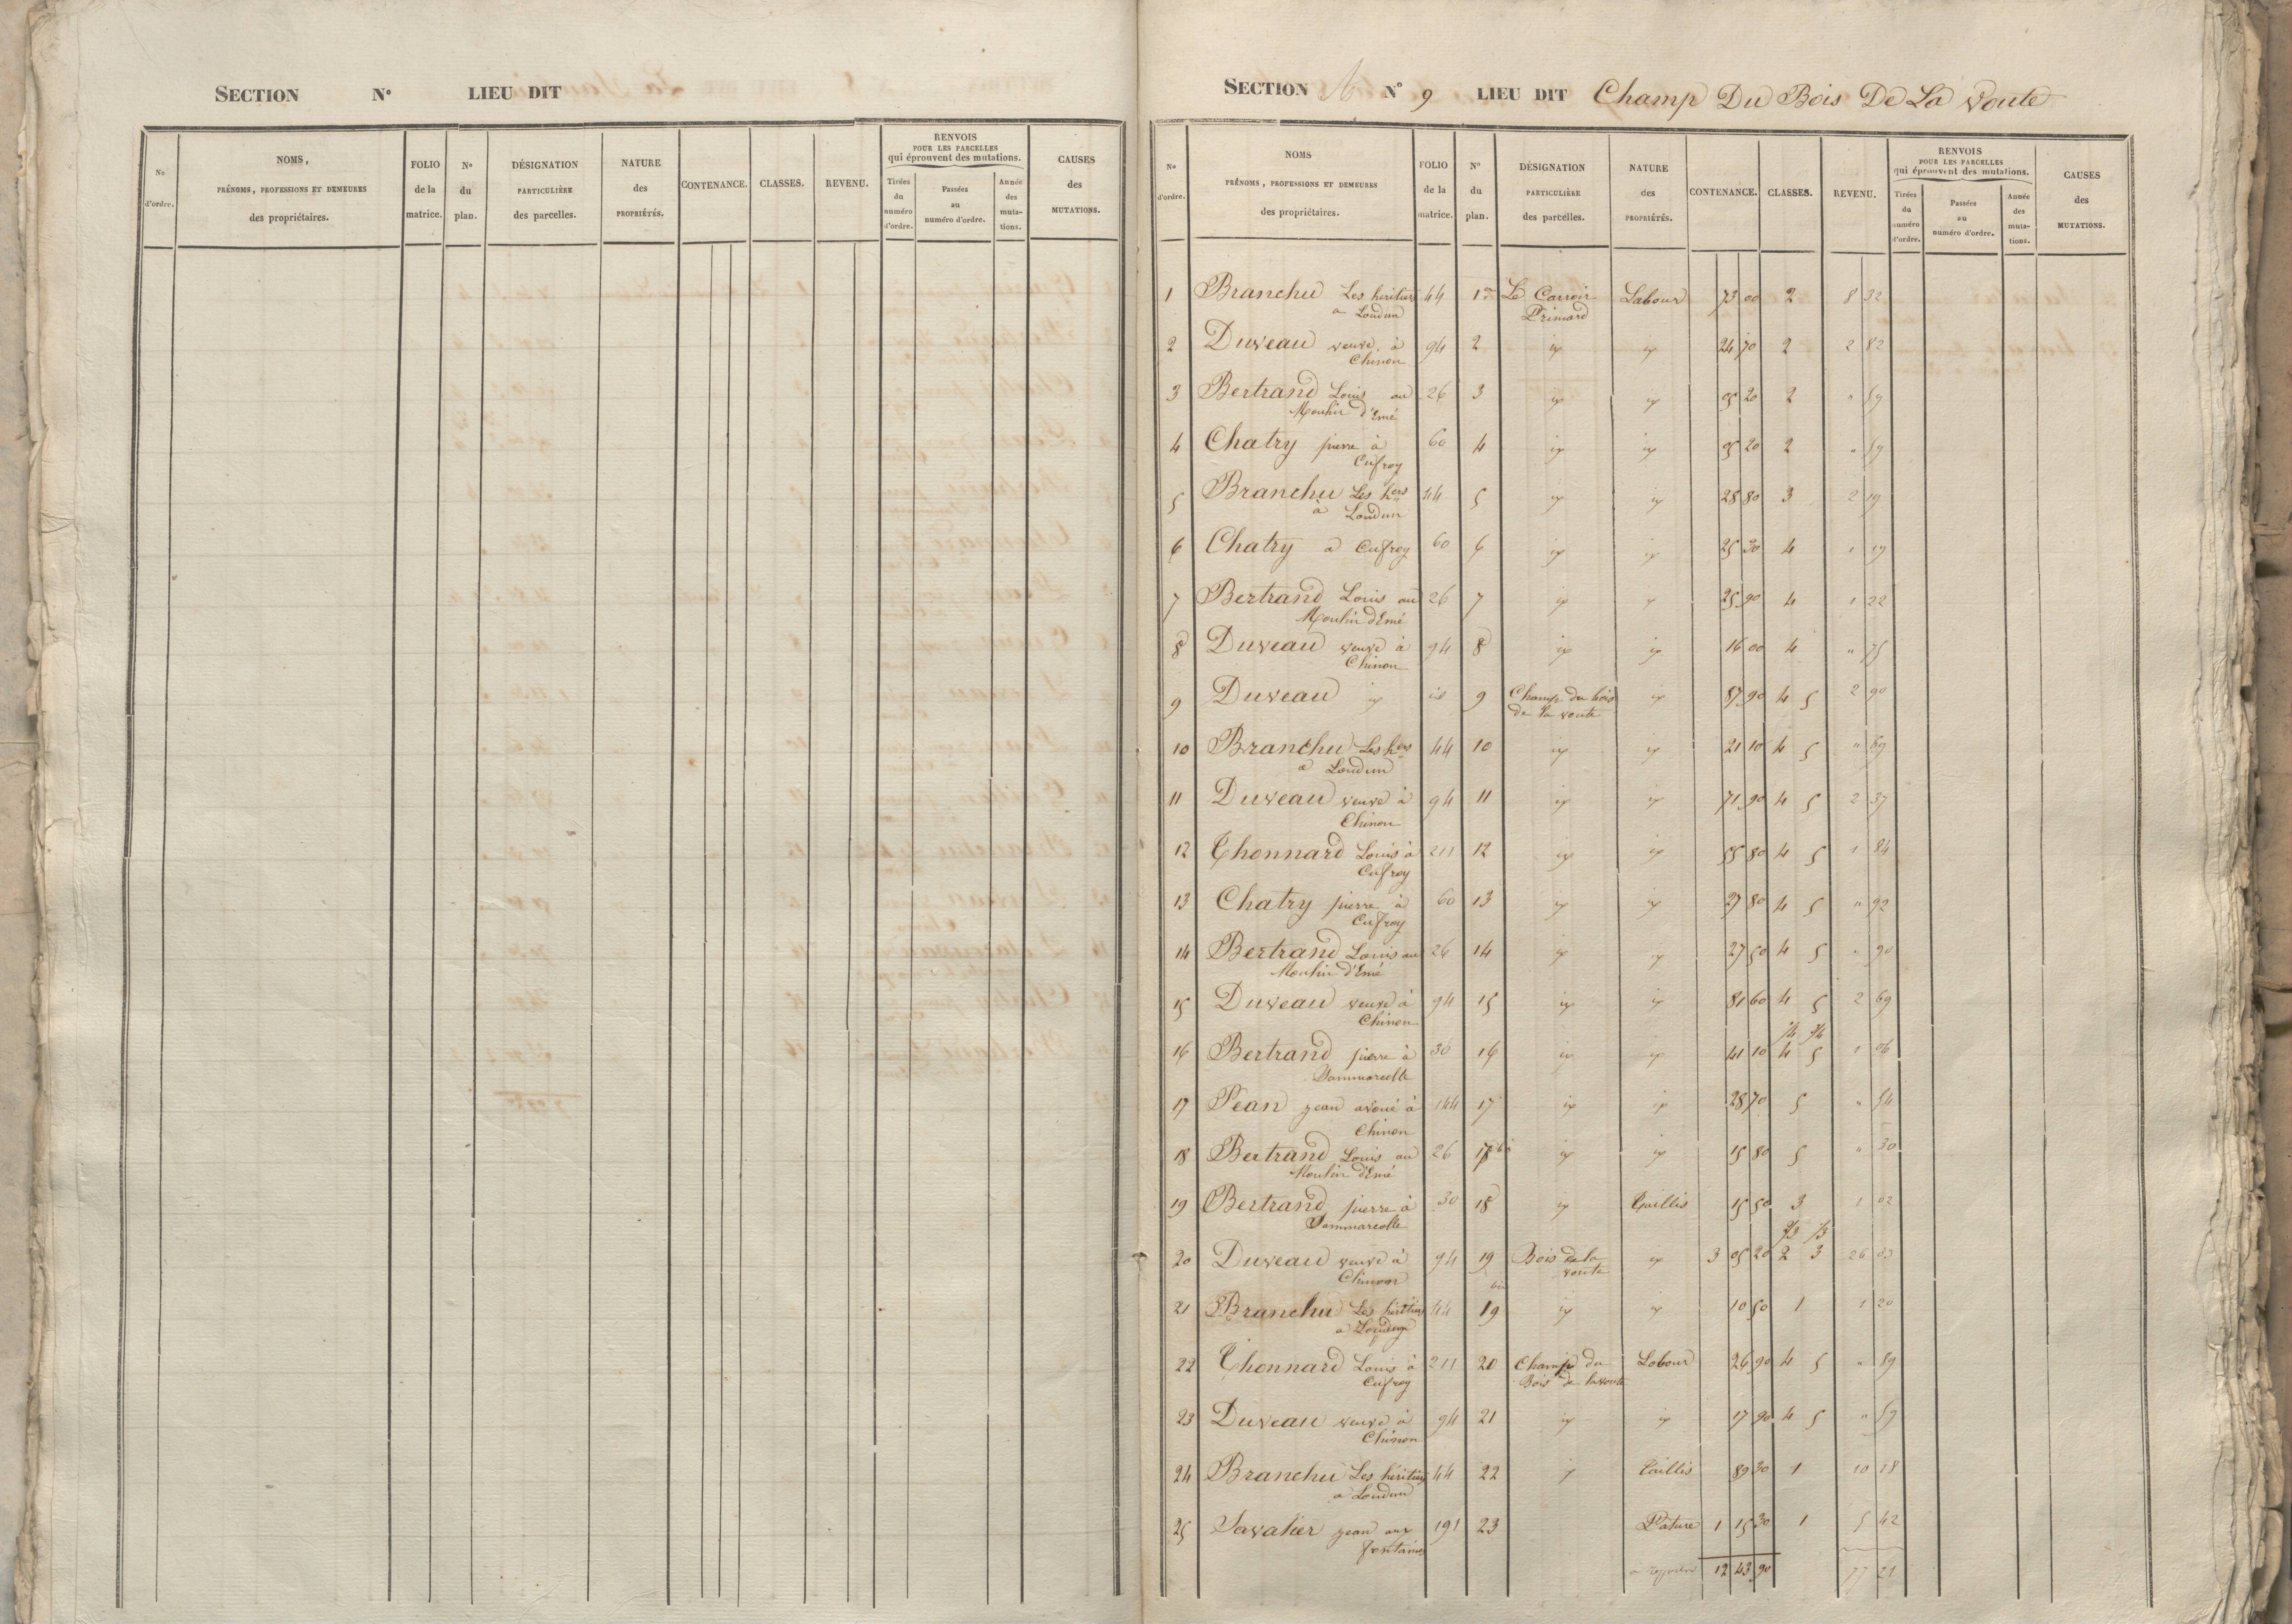 SECTION N° LIEU DIT
N° d'ordre. NOMS, PRÉNOMS, PROFESSIONS ET DEMEURES des propriétaires. FOLIO de la matrice. N° du plan. DÉSIGNATION PARTICULIÈRE des parcelles. NATURE des PROPRIÉTÉS. CONTENANCE. CLASSES. REVENU. RENVOIS POUR LES PARCELLES qui éprouvent des mutations. Tirées du numéro d'ordre. Passées au numéro d'ordre. Année des mutations. CAUSES des MUTATIONS.
SECTION N° 9 LIEU DIT Champ Du Bois De La Voute
N° d'ordre. NOMS PRÉNOMS, PROFESSIONS ET DEMEURES des propriétaires. FOLIO de la matrice. N° du plan. DÉSIGNATION PARTICULIÈRE des parcelles. NATURE des PROPRIÉTÉS. CONTENANCE. CLASSES. REVENU. RENVOIS POUR LES PARCELLES qui éprouvent des mutations. Tirées du numéro d'ordre. Passées au numéro d'ordre. Année des mutations. CAUSES des MUTATIONS.
1 Branchu Les héritiers 44 1er Le Carroir Labour 73 00 2 8 32
a Loudun Primard
2 Duveau veuve à 94 2 id id 24 70 2 2 82
Chinon
3 Bertrand Louis au 26 3 id id 05 20 2 " 59
Moulin d'Emé
4 Chatry pierre à 60 4 id id 05 20 2 " 59
Cufroy
5 Branchu Les hers 44 5 id id 28 80 3 2 19
à Loudun
6 Chatry a Cufroy 60 6 id id 25 30 4 1 19
7 Bertrand Louis au 26 7 id id 25 90 4 1 22
Moulin d'Emé
8 Duveau veuve à 94 8 id id 16 00 4 " 75
Chinon
9 Duveau id id 9 Champ du bois id 87 90 4 5 2 90
de la voute
10 Branchu Les hers 44 10 id id 21 10 4 5 " 69
a Loudun
11 Duveau veuve à 94 11 id id 71 90 4 5 2 37
Chinon
12 Thonnard Louis à 211 12 id id 55 80 4 5 1 84
Cufroy
13 Chatry pierre à 60 13 id id 27 80 4 5 " 92
Cufroy
14 Bertrand Louis au 26 14 id id 27 50 4 5 " 90
Moulin d'Emé
15 Duveau veuve à 94 15 id id 81 60 4 5 2 69
Chinon
16 Bertrand pierre à 30 16 id id 41 10 4 5 1 06
Sammarcolle
17 Péan jean avoué à 144 17 id id 28 70 5 " 54
Chinon
18 Bertrand Louis au 26 17 bis id id 15 80 5 " 30
Moulin d'Emé
19 Bertrand pierre à 30 18 id Taillis 15 50 3 1 02
Sammarcolle
2/3 1/3
20 Duveau veuve à 94 19 Bois de la id 3 05 20 2 3 26 03
Chinon voute
21 Branchu Les héritiers 44 19 bis id id 10 50 1 1 20
a Loudun
22 Thonnard Louis à 211 20 Champ du Labour 26 90 4 5 " 89
Cufroy Bois de la voute
23 Duveau veuve à 94 21 id id 17 90 4 5 " 59
Chinon
24 Branchu Les héritiers 44 22 id Taillis 89 30 1 10 18
a Loudun
25 Savatier jean aux 191 23 Pature 1 15 30 1 5 42
fontaines
a reporter 12 43 90 77 21